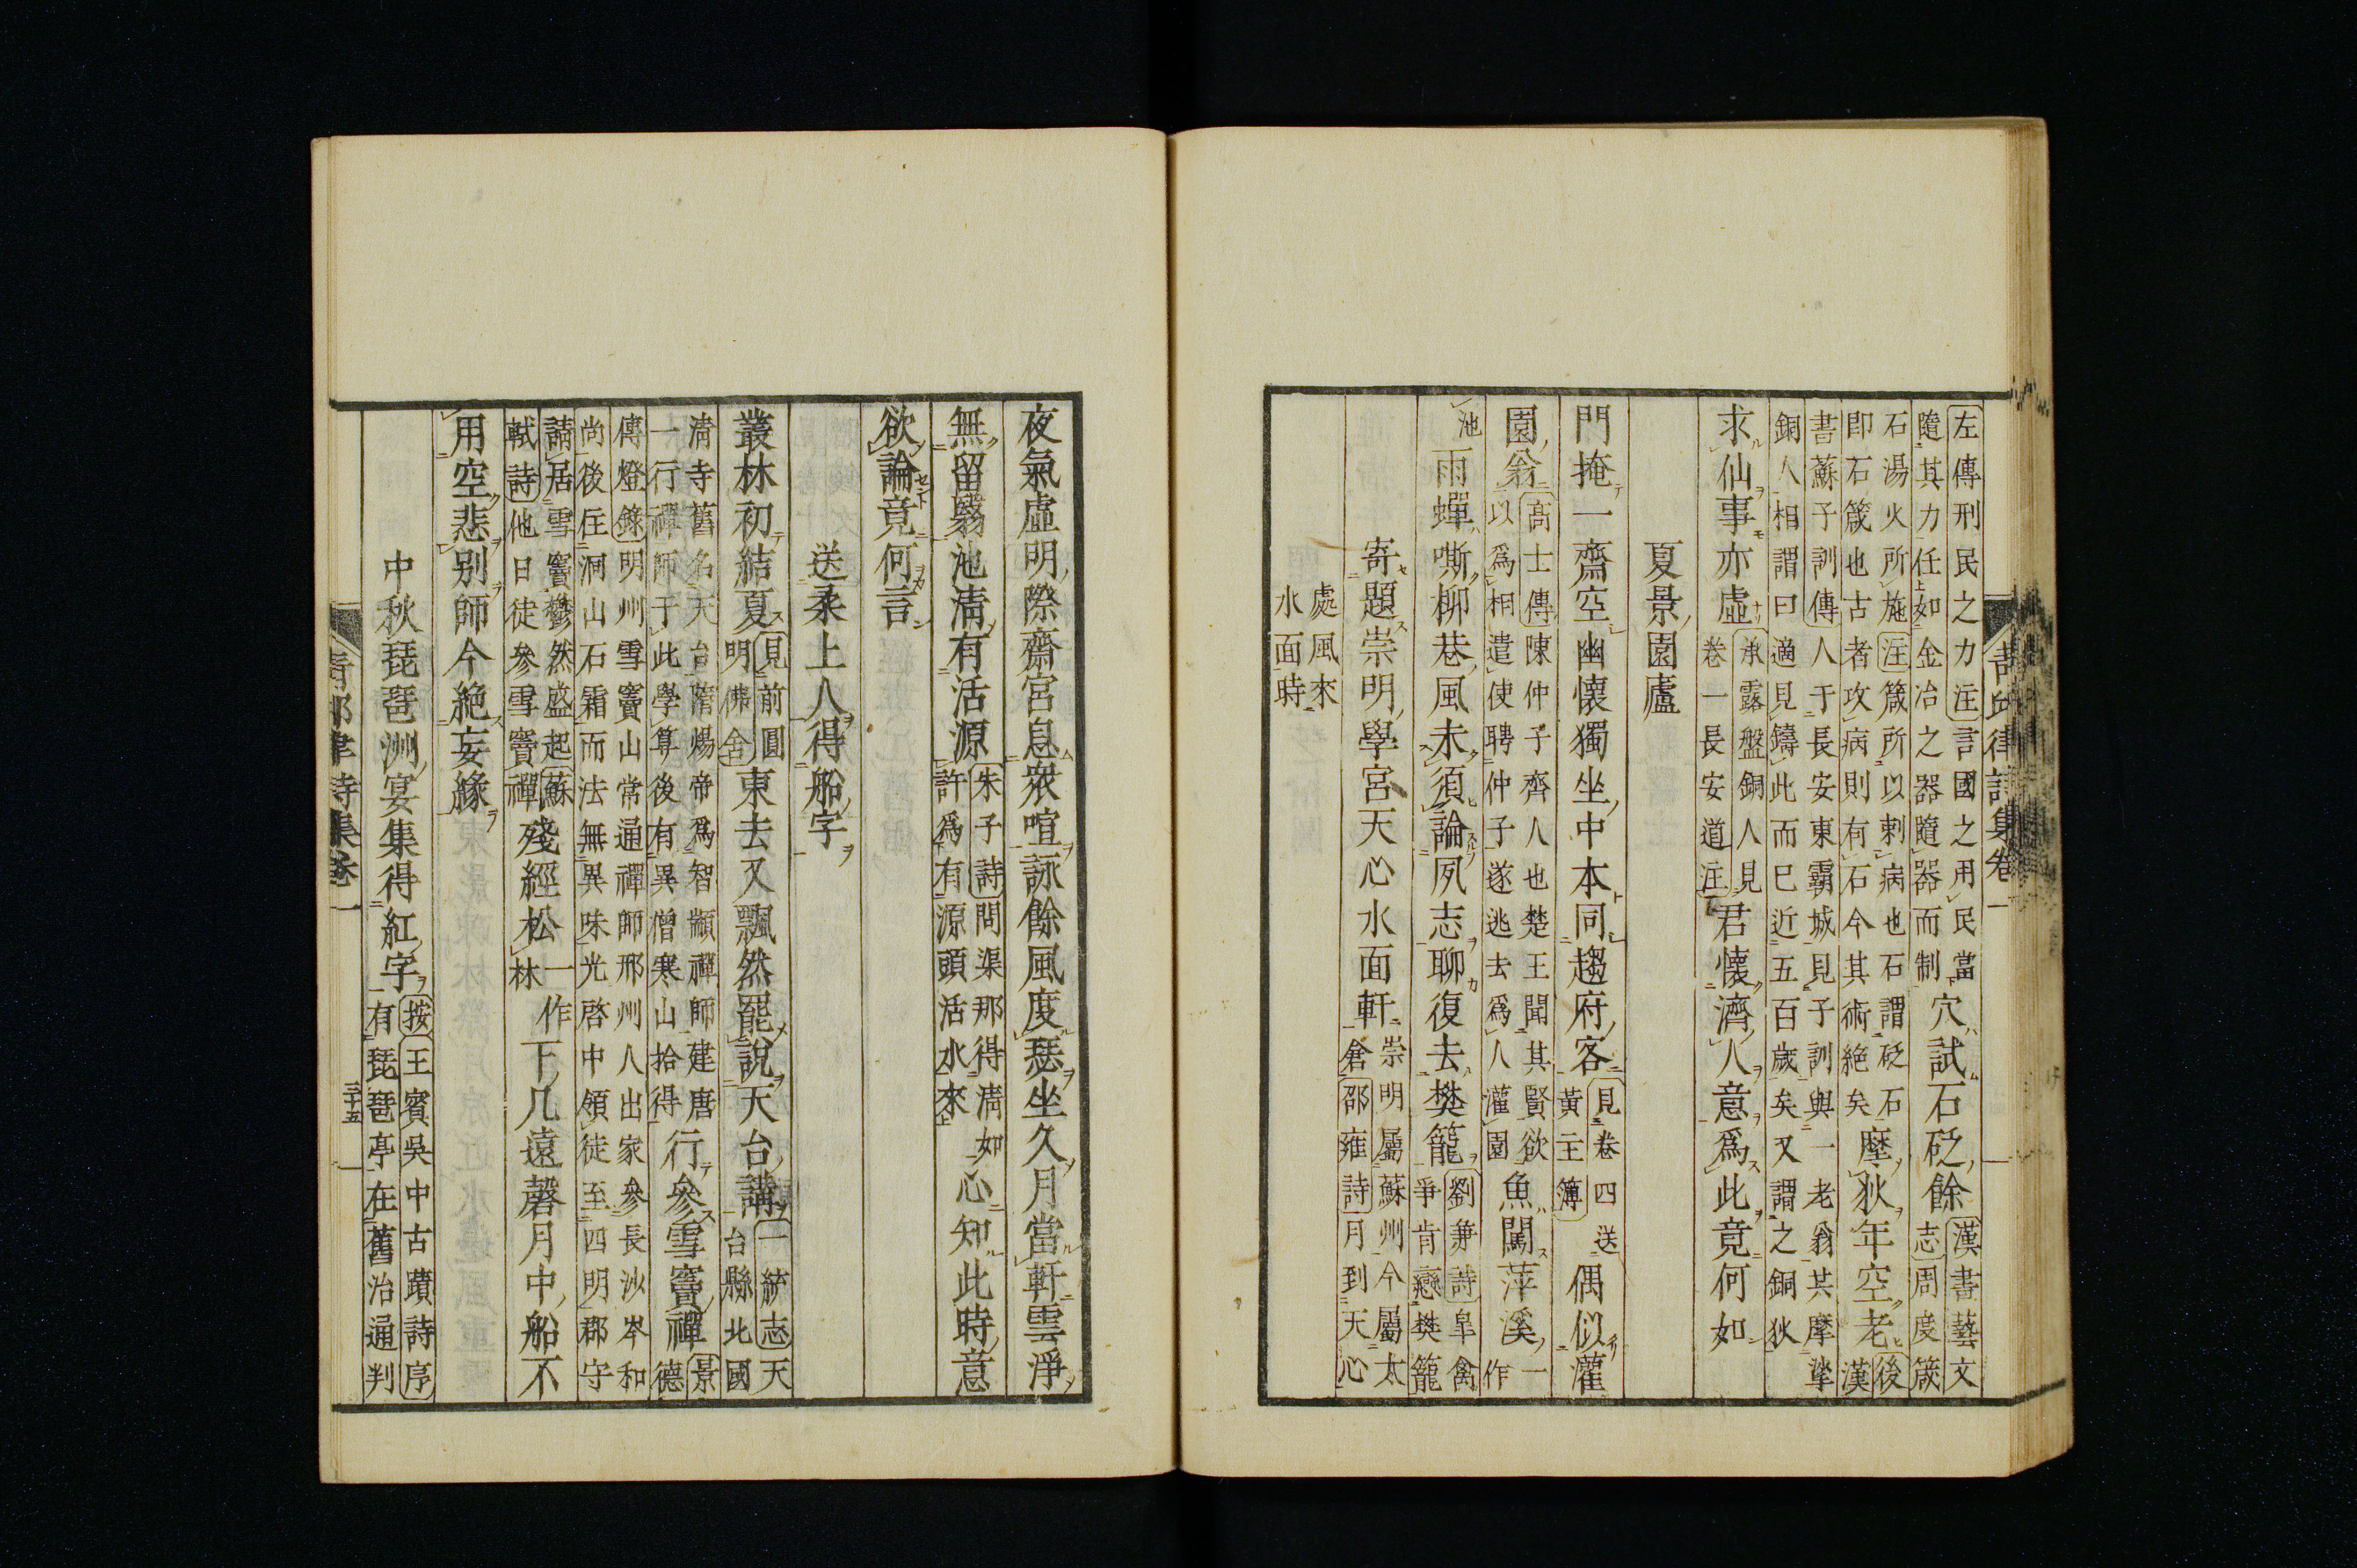 左傳刑民之力注言國之用民當
隨其力任如金冶之器隨器而制
穴試石砭餘
漢書藝文
志周度箴
石湯火所施注箴所以刺病也石謂砭石
即石箴也古者攻病則有石今其術絶矣
摩狄年空老
後
漢
書蘇子訓傳人于長安東霸城見子訓與一老翁共摩挲
銅人相謂曰適見鑄此而已近五百歲矣又謂之銅狄
求仙事亦虛
承露盤銅人見
卷一長安道注
君懷濟人意爲此竟何如
夏景園廬
門掩一齋空幽懷獨坐中本同趨府客
見卷四送
黃主簿
偶似灌
園翁
高士傳陳仲子齊人也楚王聞其賢欲
以爲相遣使聘仲子遂逃去爲人灌園
魚闖萍溪
一作
池
雨蟬嘶柳巷風未須論夙志聊復去樊籠
劉兼詩皐禽
爭肯戀樊籠
寄題崇明學宮天心水面軒
崇明屬蘇州今屬太
倉邵雍詩月到天心
處風來
水面時
青邱律詩集卷一
夜氣虛明際齋宮息衆喧詠餘風度瑟坐久月當軒雲淨
無留翳池淸有活源
朱子詩問渠那得淸如
許爲有源頭活水來
心知此時意
欲論竟何言
送柔上人得船字
叢林初結夏
見前圓
明佛舍
東去又飄然罷說天台講
一統志天
台縣北國
淸寺舊名天台隋煬帝爲智顗禪師建唐
一行禪師于此學算後有異僧寒山拾得
行參雪竇禪
景
德
傳燈錄明州雪竇山常通禪師邢州人出家參長沙岑和
尚後住洞山石霜而法無異味光啓中領徒至四明郡守
請居雪竇鬱然盛起蘇
軾詩他日徒參雪竇禪
殘經松
一作
林
下几遠磬月中船不
用空悲別師今絶妄緣
中秋琵琶洲宴集得紅字
按王賓吳中古蹟詩序
有琵琶亭在舊治通判
青邱律詩集卷一
三十五